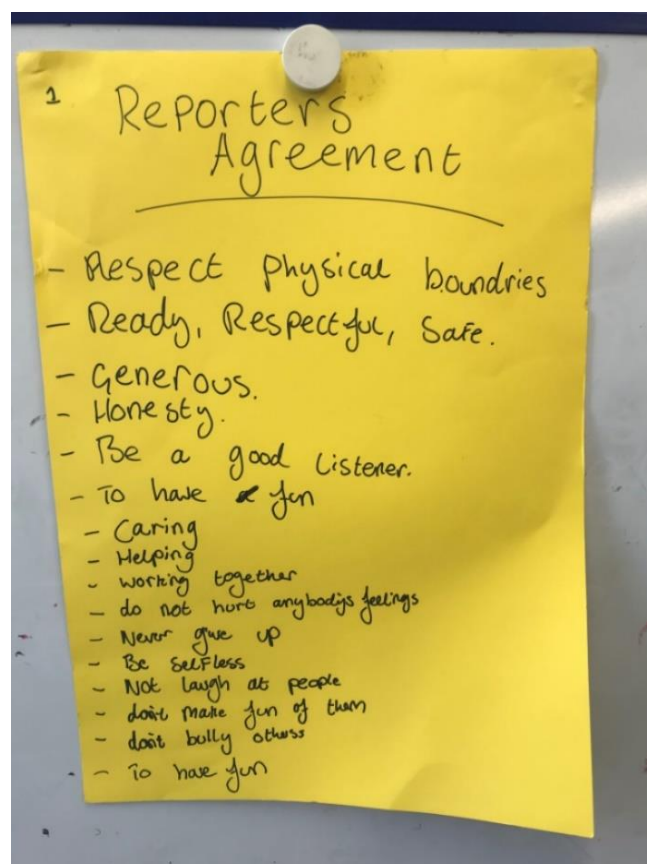 1
Reporters
Agreement
- Respect physical boundries
- Ready, Respectful, Safe.
- Generous.
- Honesty.
- Be a good Listener.
- To have fun
- Caring
- Helping
- working together
- do not hurt anybodys feelings
- Never give up
- Be Selfless
- Not laugh at people
- don't make fun of them
- don't bully others
- To have fun